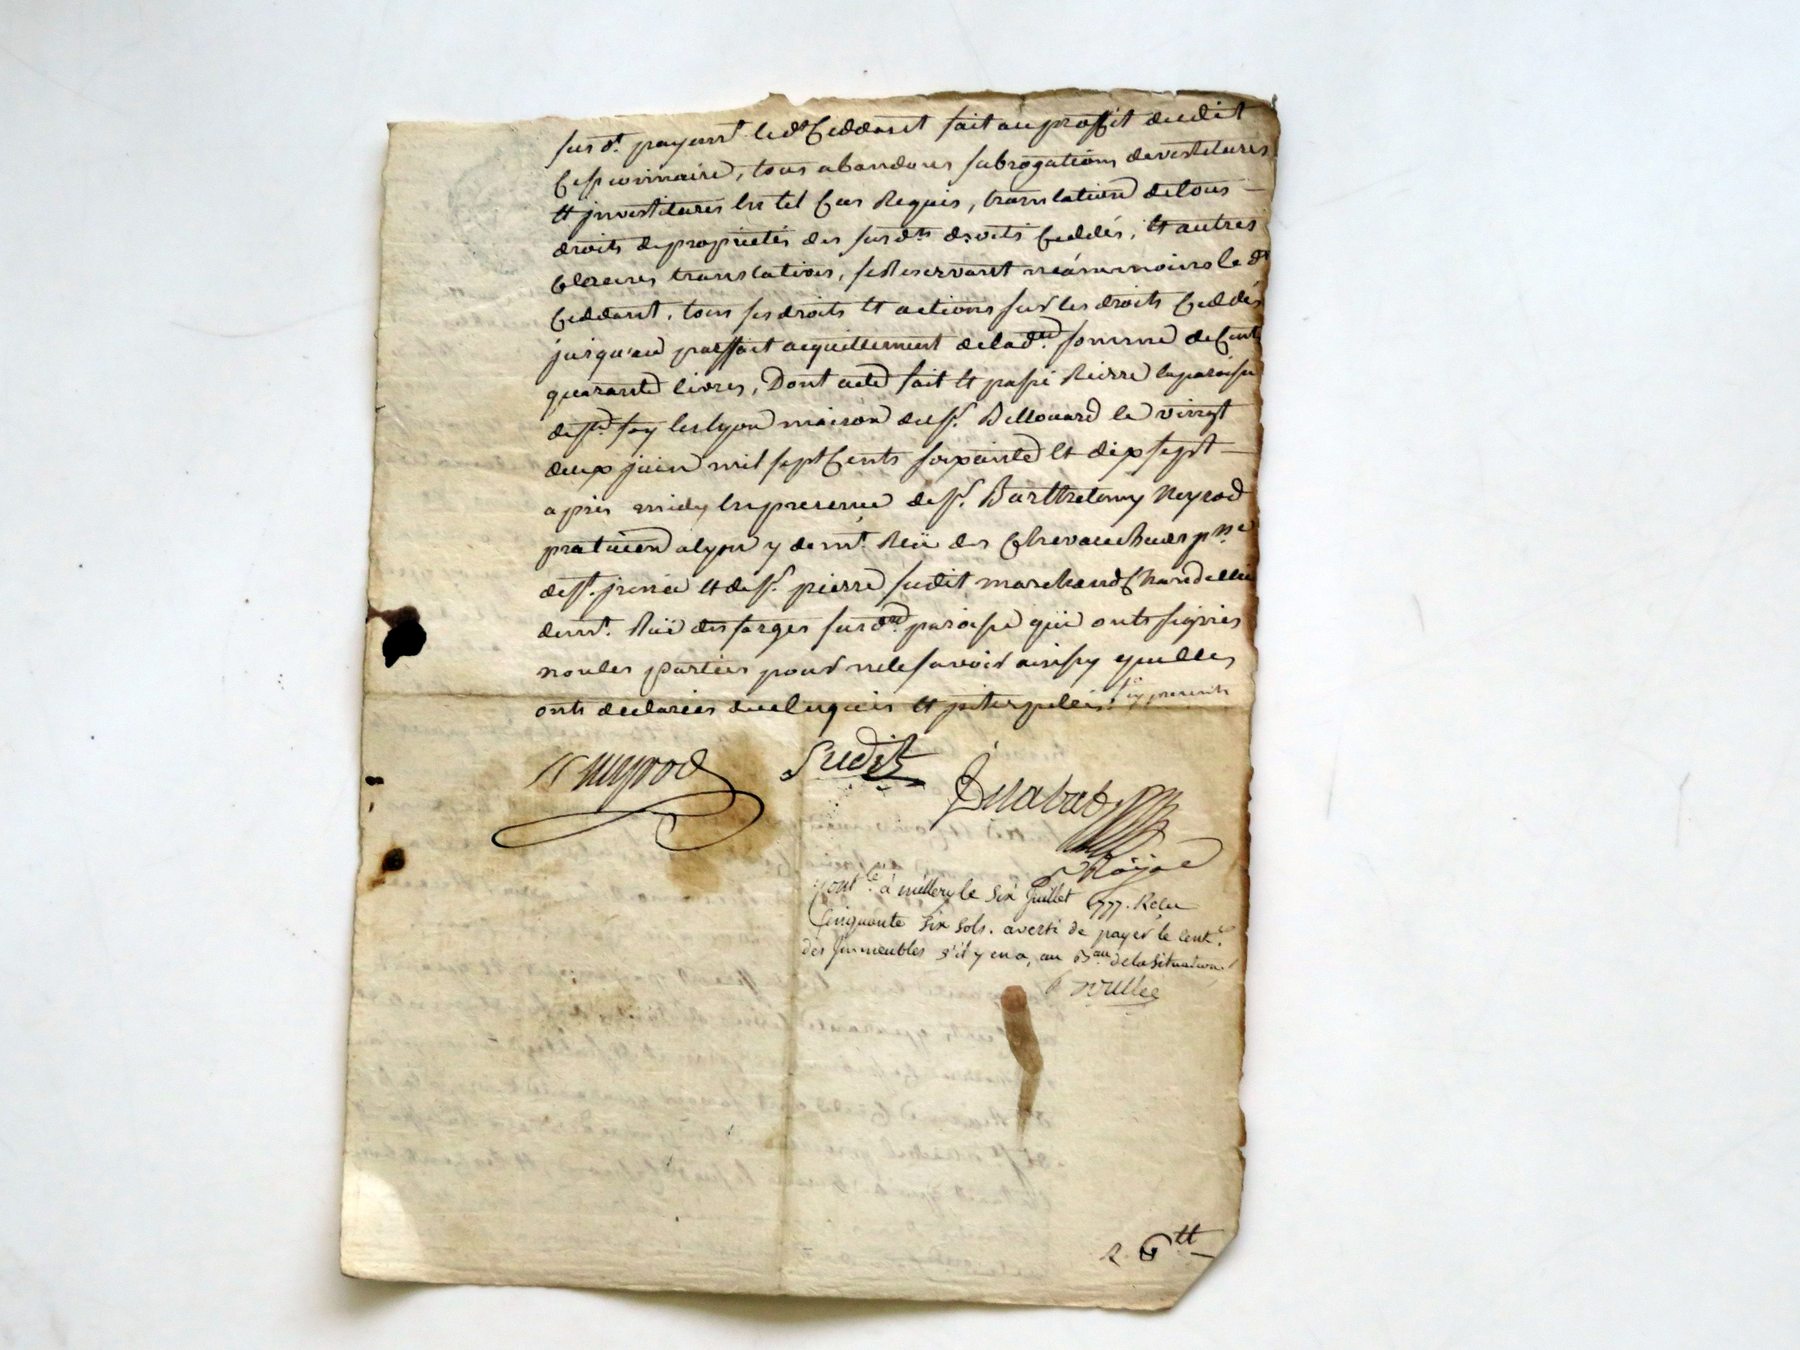 susdt. payemt. ledt Ceddant fait au proffit dudit
Cessionnaire, tous abandons subrogations devestitures
et jnvestitures En tel Cas Requis, translation de tous
droits de proprietés des susdts droits Ceddés, et autres
Clauses translatives, se Reservant néanmoins le dt
Ceddant, tous ses droits et actions sur les droits Ceddés
jusqu'au parffait acquittement de lade. somme de Cent
quarante livres, Dont acte fait et passé Rierre la paroisse
de ste. foy les lyon maison du sr. Bellouard le vingt
deux juin mil sept Cents soixante et dix sept
après midy En presence de sr. Barthelemy Neyrod
praticien a lyon y demt. Rüe des Chevaucheurs psse
de st. jrené et de sr. pierre Sudit marchand Chandellier
demt. Rüe des farges susde. paroisse qui onts signés
non les parties pour ne le savoir ainsy quelles
onts declarées duel requis et jnterpellés. cy presents
Neyrod
Sudit
Delabat
Royal
Cont.lé à millery le Six Juillet 1777. Reçu
Cinquante Six Sols. averti de payer le Cent.e
des Jmmeubles s'il y en a, au Bau de la Situation
R 6 tt